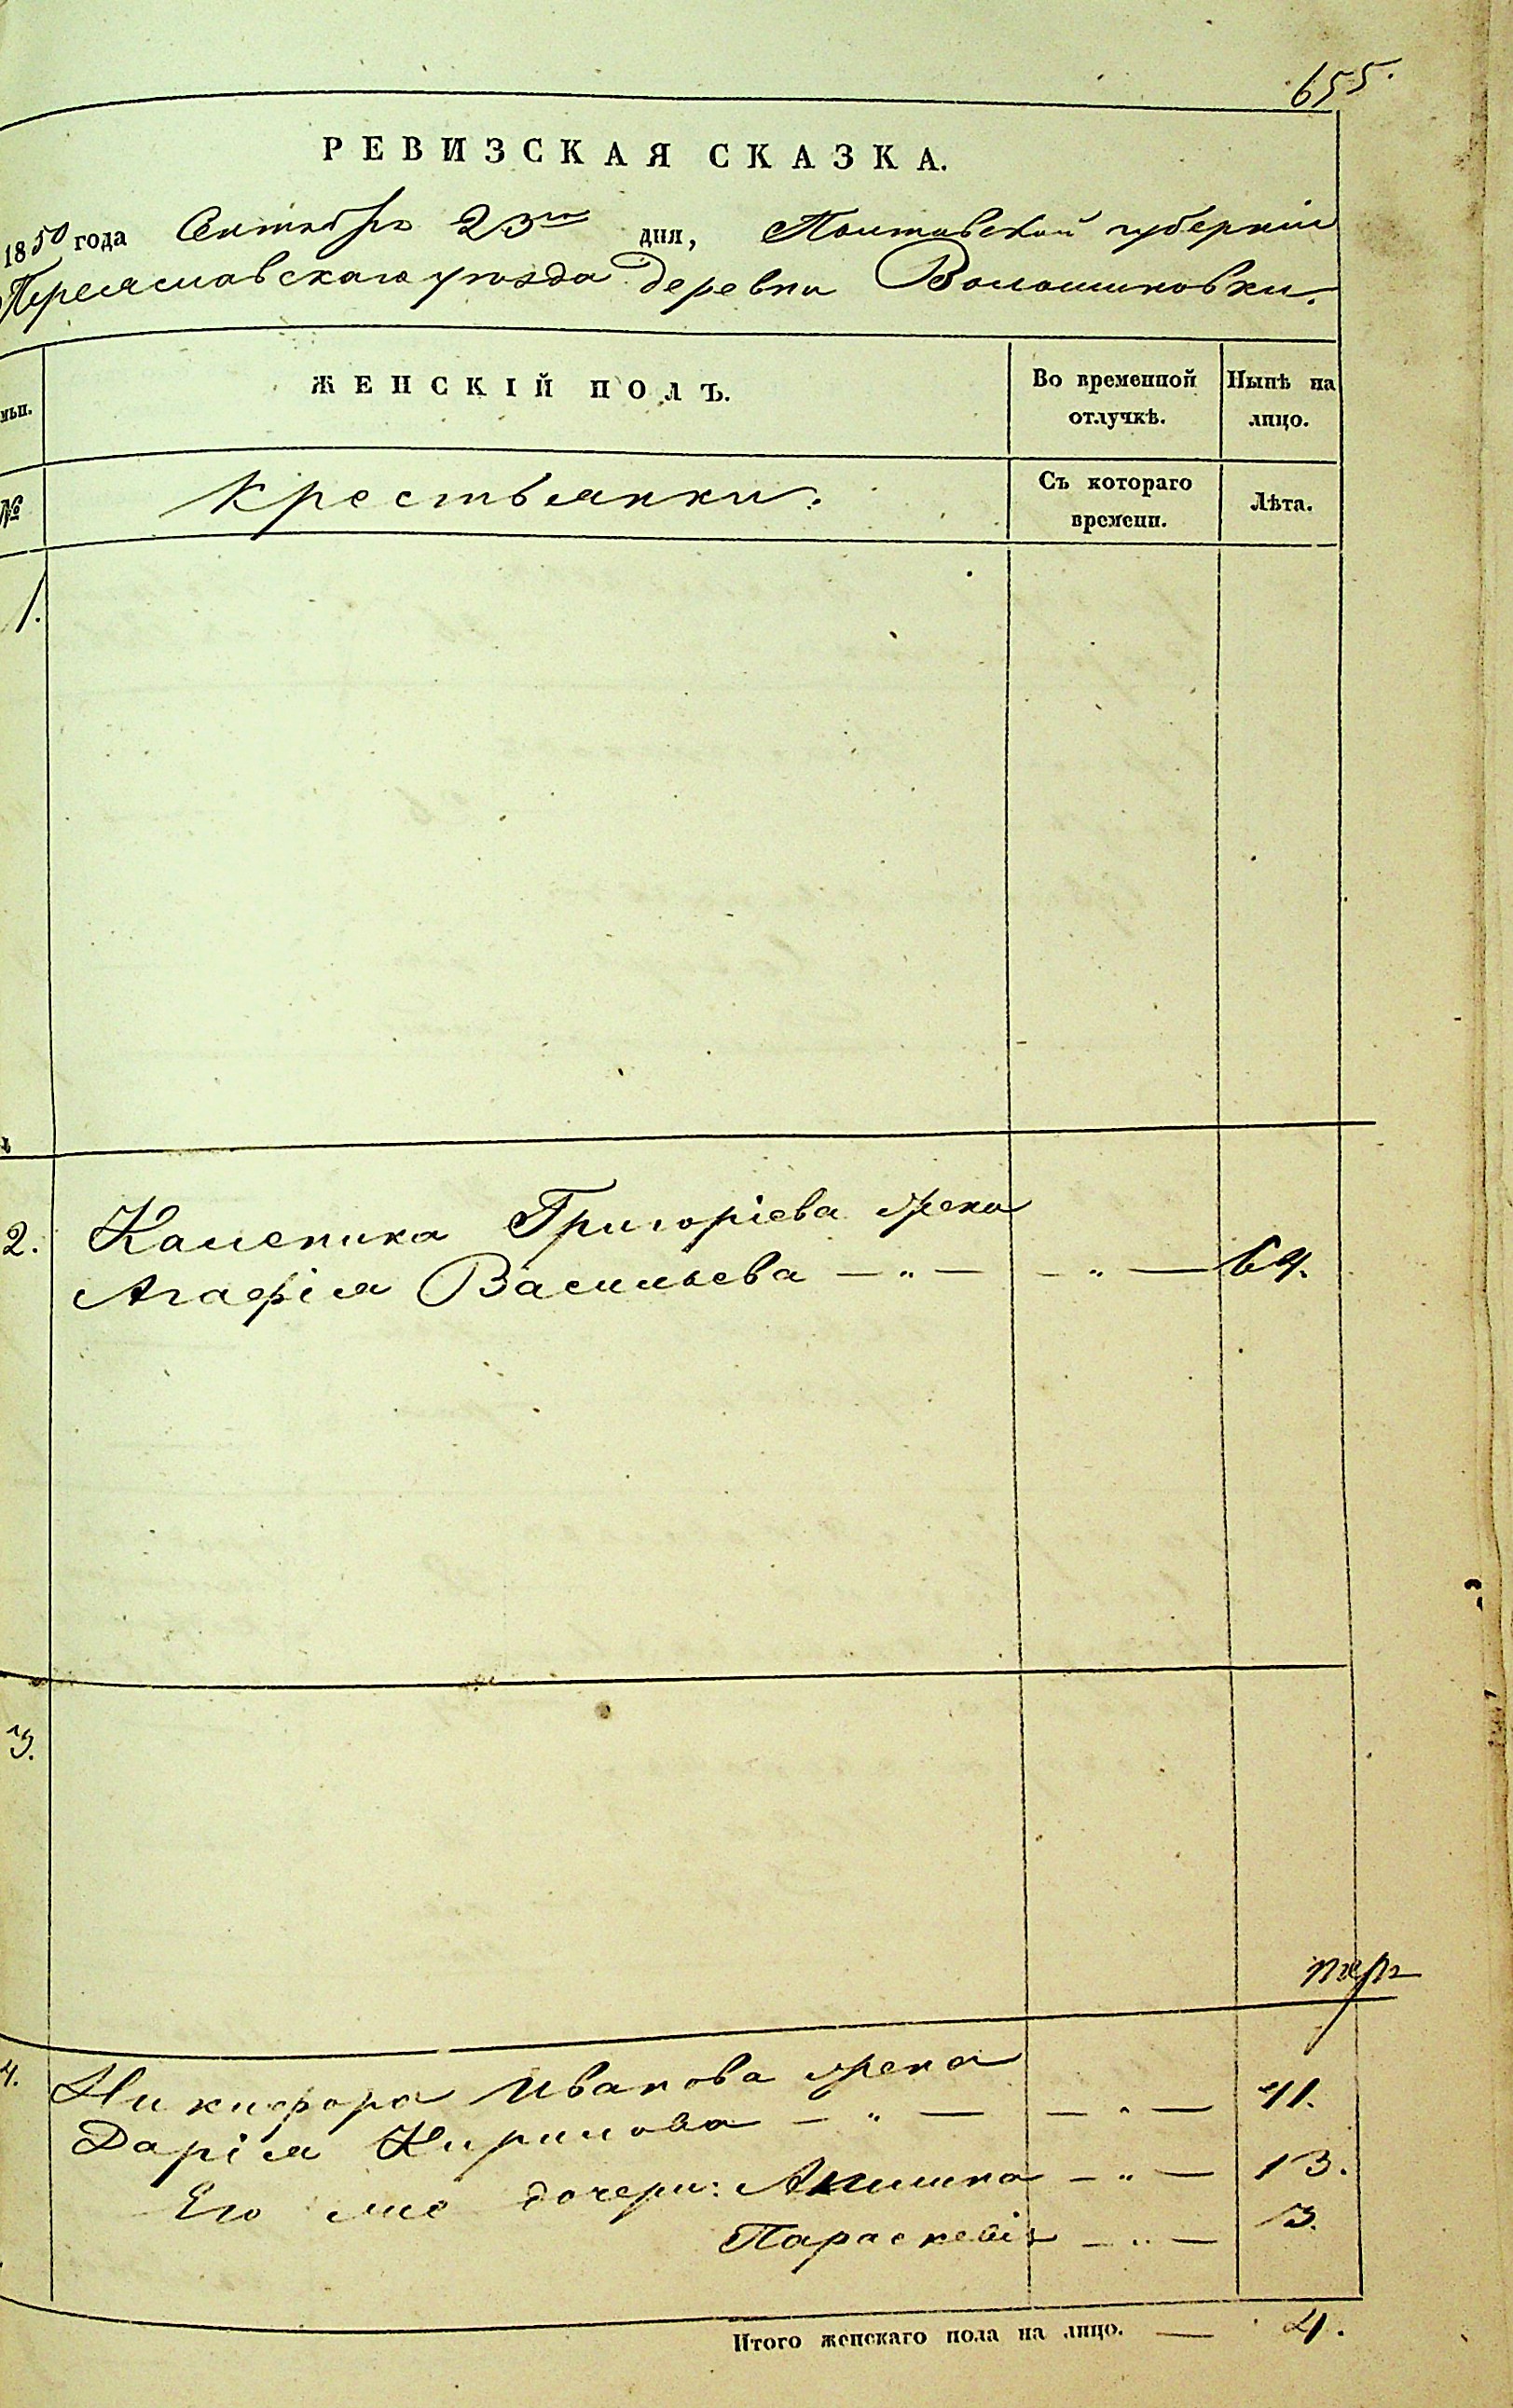 655.
РЕВИЗСКАЯ СКАЗКА.
1850 года Сентября 23го дня, Полтавской губерніи
Переяславскаго уѣзда деревни Волошиновки.
ЖЕНСКІЙ ПОЛЪ.
Во временной отлучкѣ.
Нынѣ на лицо.
№
Крестьянки.
Съ котораго времени.
Лѣта.
1.
2. Каленика Григоріева жена
Агафія Васильева — „ — — „ — 64.
3.
4. Никифора Иванова жена
Дарія Кирилова — „ — — „ — 41.
Его же дочери: Акилина — „ — 13.
Параскевія — „ — 3.
Итого женскаго пола на лицо. — 4.